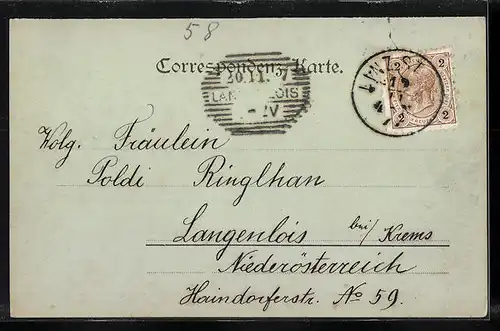 58
Correspondenz-Karte.
20.11. 7
LANGENLOIS
LINZ
2 2
2 2
Wolg. Fräulein
Poldi Ringlhan
Langenlois bei/ Krems
Niederösterreich
Haindorferstr. No 59.